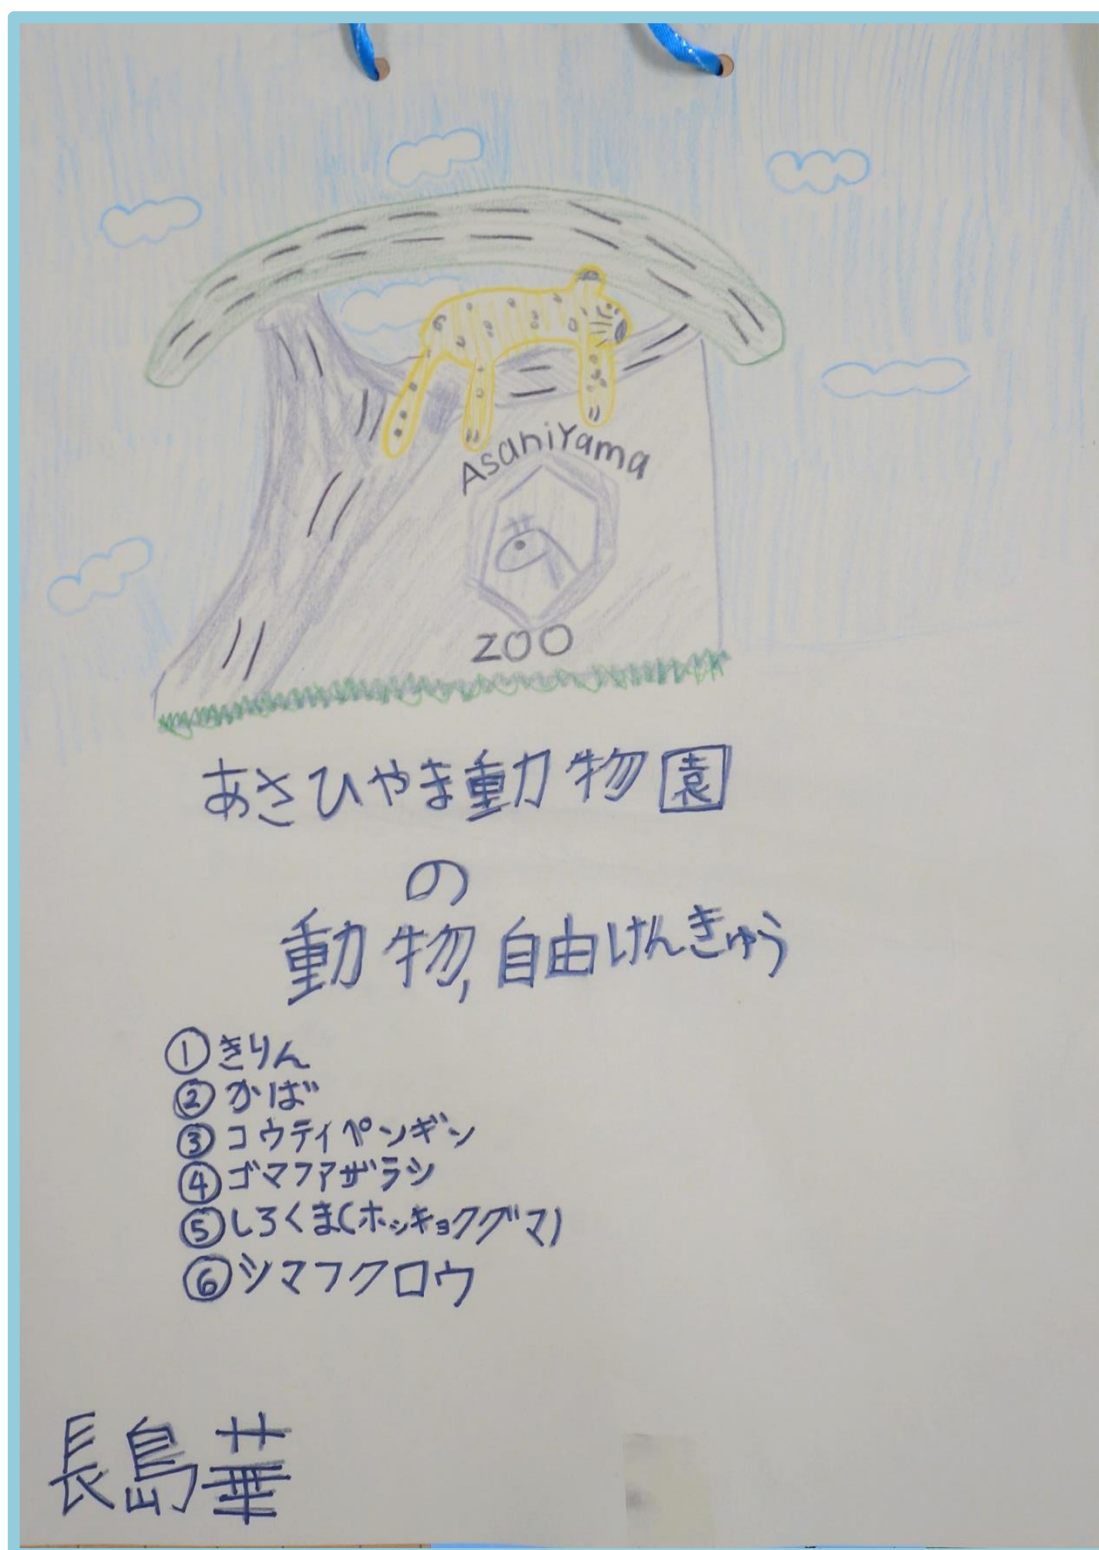 AsahiYama
ZOO
あさひやま動物園
の
動物,自由けんきゅう
①きりん
②かば
③コウテイペンギン
④ゴマフアザラシ
⑤しろくま(ホッキョクグマ)
⑥シマフクロウ
長島華